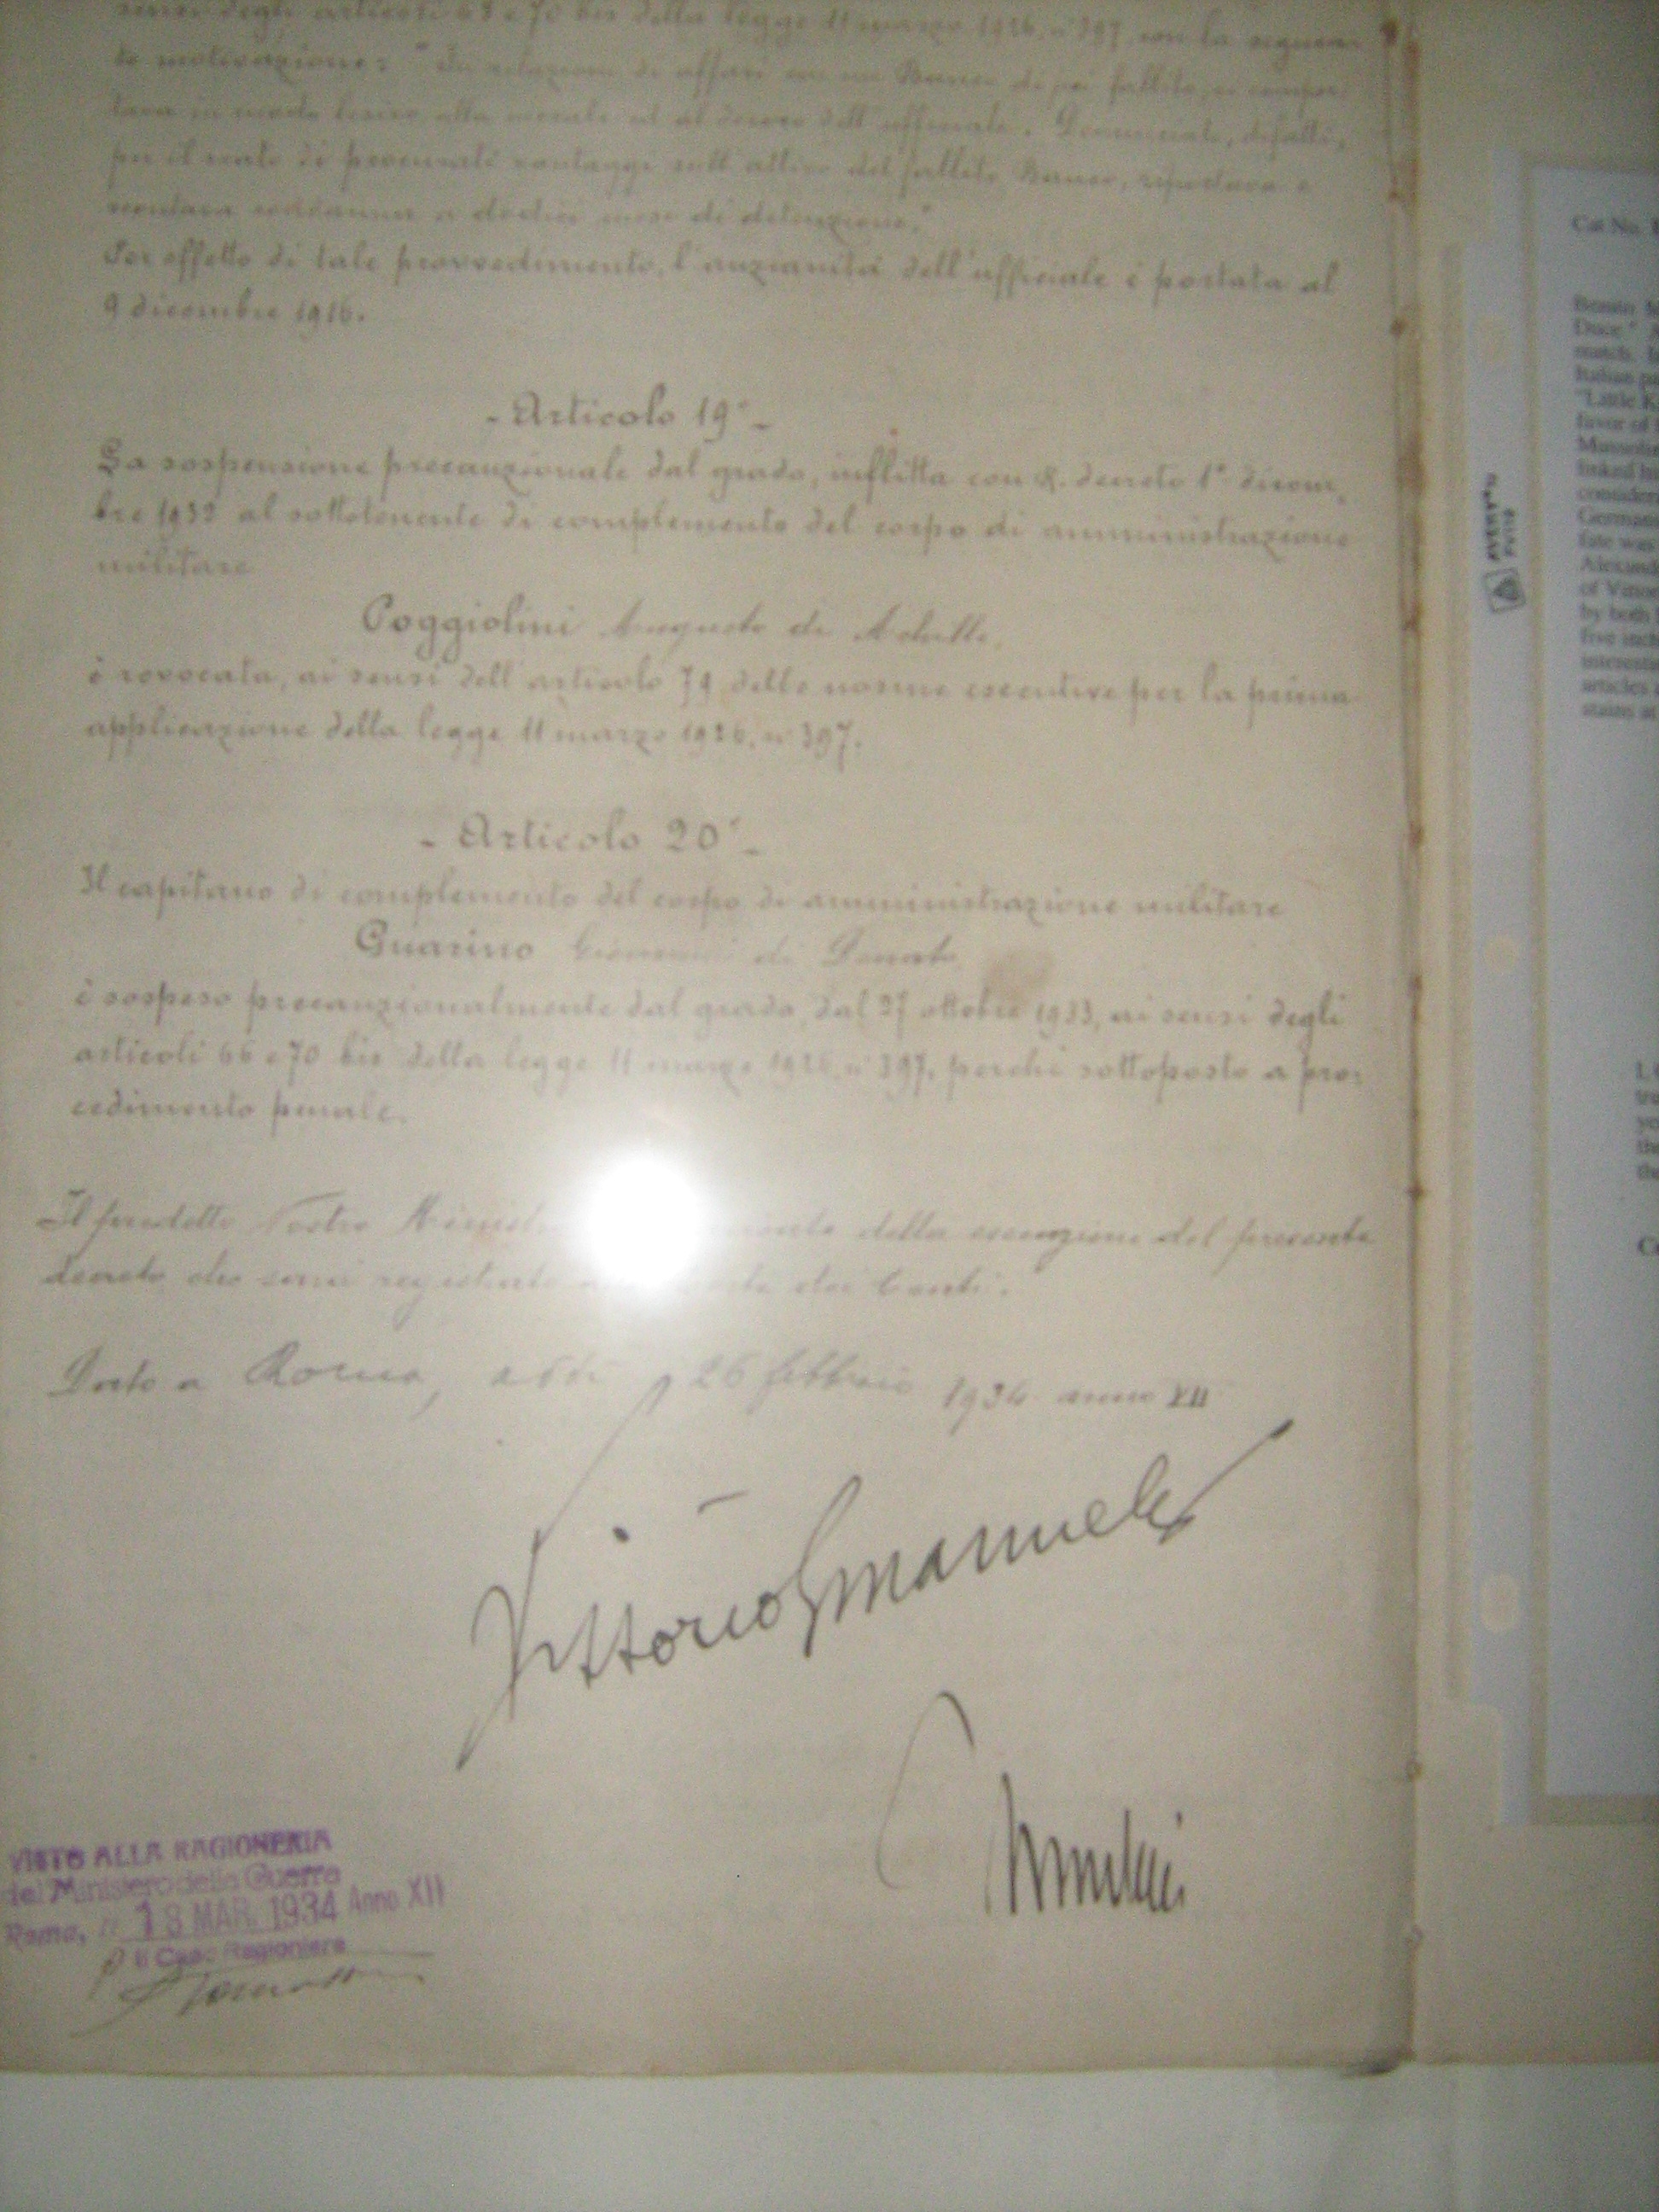 sensi degli articoli 68 e 70 bis della legge 11 marzo 1926, n° 397, con la seguen-
te motivazione: "In relazione di affari con un Banco di poi fallito, si compor-
tava in modo lesivo alla morale ed al decoro dell'ufficiale. Denunciato, difatti,
per il reato di procurati vantaggi sull'attivo del fallito Banco, riportava e
scontava condanna a dodici mesi di detenzione."
Per effetto di tale provvedimento, l'anzianità dell'ufficiale è portata al
9 dicembre 1916.
- Articolo 19° -
La sospensione precauzionale dal grado, inflitta con R. decreto 1° dicem-
bre 1932 al sottotenente di complemento del corpo di amministrazione
militare
Poggiolini Augusto di Achille,
è revocata, ai sensi dell'articolo 74 delle norme esecutive per la prima
applicazione della legge 11 marzo 1926, n° 397.
- Articolo 20° -
Il capitano di complemento del corpo di amministrazione militare
Guarino Giovanni di Donato
è sospeso precauzionalmente dal grado, dal 27 ottobre 1933, ai sensi degli
articoli 66 e 70 bis della legge 11 marzo 1926, n° 397, perchè sottoposto a pro-
cedimento penale.
Il predetto Nostro della esecuzione del presente
decreto che sarà registrato dei Conti.
Dato a Roma, addì 26 febbraio 1934 anno XII
Vittorio Emanuele
Mussolini
VISTO ALLA RAGIONERIA
del Ministero della Guerra
Roma, li 18 MAR. 1934 Anno XII
Il Capo Ragioniere
Cat No.
Duce."
match.
Italian
"Little K
favor of
Mussolin
linked
consider
German
fate was
Alexand
of Vittor
by both
five inch
interesti
articles
stains at